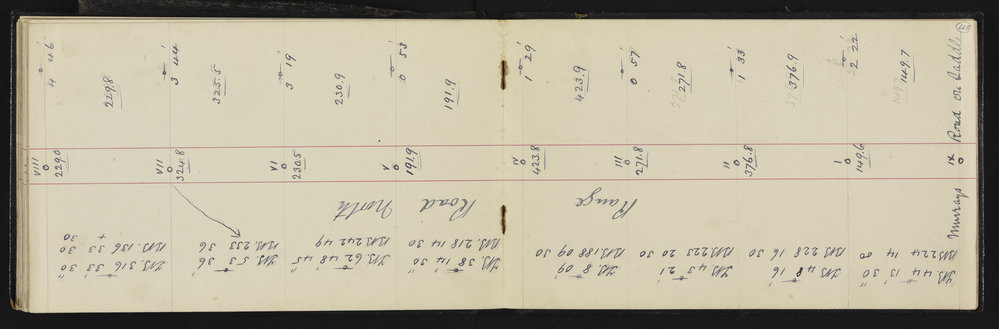 Murrays IX Road on Saddle
FB. 44° 13' 30"
BB 224 14 00
149.6
149.7
I
2° 22'
FB 48° 16'
BB 228 16 30
376.8
376.9
II
1° 33'
FB 43° 21'
BB 223 20 30
271.8
271.8
III
0° 57'
FB. 8° 09'
BB. 188 09 30
423.8
423.9
IV
1° 29'
Range Road North
FB. 38° 14' 30"
BB. 218 14 30
191.9
191.9
V
0° 53'
FB. 62° 48' 45"
BB 242 49
230.5
230.9
VI
3° 19'
FB 53° 36'
BB 233 36
324.8
325.5
VII
3° 44'
FB. 316° 33' 30"
BB. 136 33 30
+ 30
229.0
229.8
VIII
4° 46'